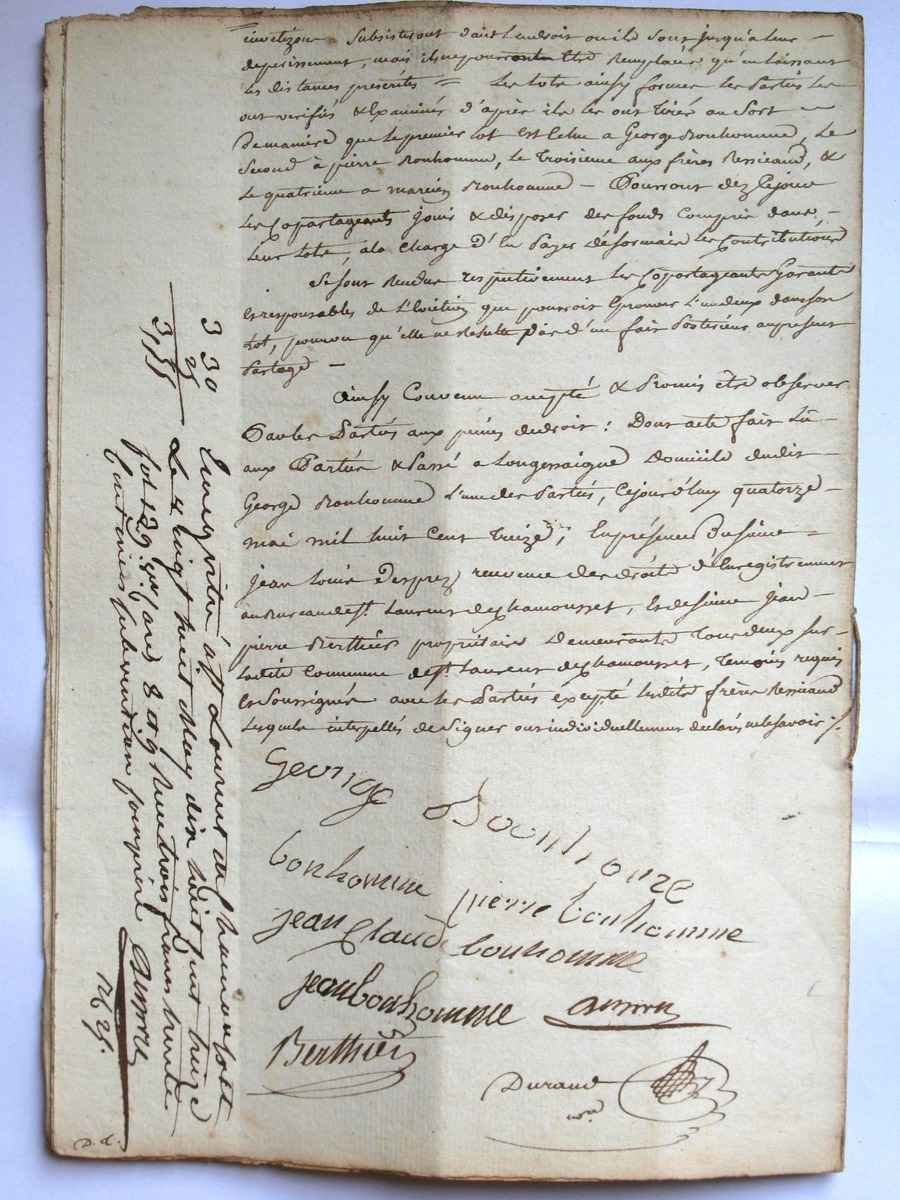 subsisteront dans l'endroit ou ils sont jusqu'a leur
deperissement, mais ils ne pourront être Remplacés qu'en laissant
les distances préscrites = Les lots ainsy formés les Parties les
ont verifiés & Examinés d'après ils les ont tirés au Sort
De maniere que le premier lot est Echu a George Bonhomme, Le
Second à pierre Bonhomme, le troisieme aux frères Ressicaud, &
Le quatrieme a Bonhomme - Pourront dez ce jour
Les Copartageants jouir & disposer des fonds Compris dans
Leur lots, a la Charge d'En Payer désormais les Contributions
Se sont Rendus respectivement les Copartageants Garants
et responsables de l'Eviction que pourroit Eprouver l'un deux dans son
Lot, pourvu qu'elle ne Resulte pas d'un fait Posterieur au present
Partage -
Ainsy Convenu accepté & Promis être observer
Par les Parties aux peines de droit : Dont acte fait Lû
aux Parties & Passé a Longessaigne Domicile du dit
George Bonhomme L'une des Parties, Cejourd'huy quatorze
mai mil huit Cent treize, En présence du sieur
jean louis Desprez receveur des droits d'Enregistrement
au Bureau de St. Laurent de chamousset, et de sieur jean
pierre Berthier propriétaire Demeurants tous deux sur
ladite Commune de St. Laurent de chamousset, temoins requis
et Soussignés avec les Parties excepté lesdits frères Ressicaud
Lesquels interpellés de Signer ont individuellement déclaré ne le savoir ./.
George Bonhome
bonhomme pierre bonhomme
jean Claude bonhomme
jean bonhomme
Berthier
Durand
nre
3 30
Enregistré à St Laurent de Chamousset
Le vingt huit May dix huit cent treize
fol 129 Vo Cases 8 et 9 Reçu trois francs trente
Centimes Subvention comprise
D. d.